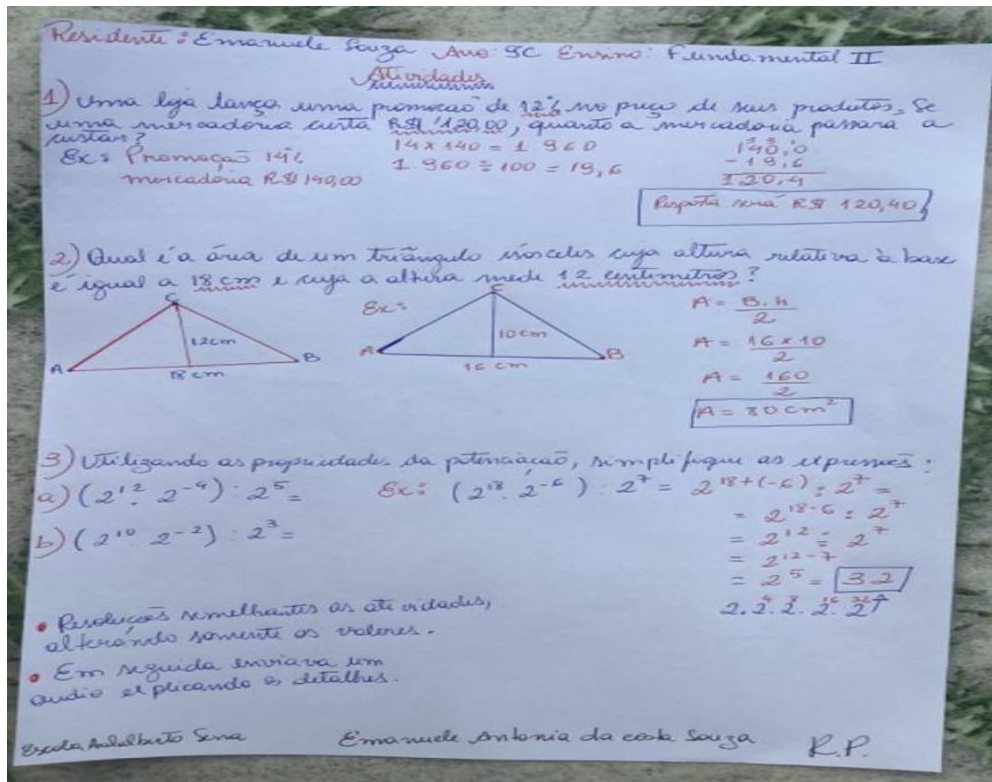 Residente: Emanuele Souza Ano 9C Ensino: Fundamental II
Atividades
1) Uma loja lança uma promoção de 12% no preço de seus produtos. Se
uma mercadoria custa R$ 120,00, quanto a mercadoria passará a
custar?
Ex: Promoção 14%
mercadoria R$ 140,00
14 x 140 = 1 960
1.960 ÷ 100 = 19,6
140,0
- 19,6
120,4
Resposta será R$ 120,40
2) Qual é a área de um triângulo isósceles cuja altura relativa à base
é igual a 18 cm e cuja a altura mede 12 centímetros?
C
12cm
A
B
18 cm
Ex:
C
10cm
A
B
16 cm
A = B.h
2
A = 16 x 10
2
A = 160
2
A = 80 cm²
3) Utilizando as propriedades da potenciação, simplifique as expressões:
a) (2¹² . 2⁻⁴) : 2⁵ =
b) (2¹⁰ 2⁻²) : 2³ =
Ex: (2¹⁸ . 2⁻⁶) : 2⁷ = 2¹⁸⁺⁽⁻⁶⁾ : 2⁷ =
= 2¹⁸⁻⁶ : 2⁷
= 2¹² ÷ 2⁷
= 2¹²⁻⁷
= 2⁵ = 32
4 8 16 32
2.2.2.2.2
• Resoluções semelhantes as atividades,
alterando somente os valores.
• Em seguida enviava um
audio explicando os detalhes.
Escola Adalberto Sena Emanuele Antonia da costa Souza R.P.